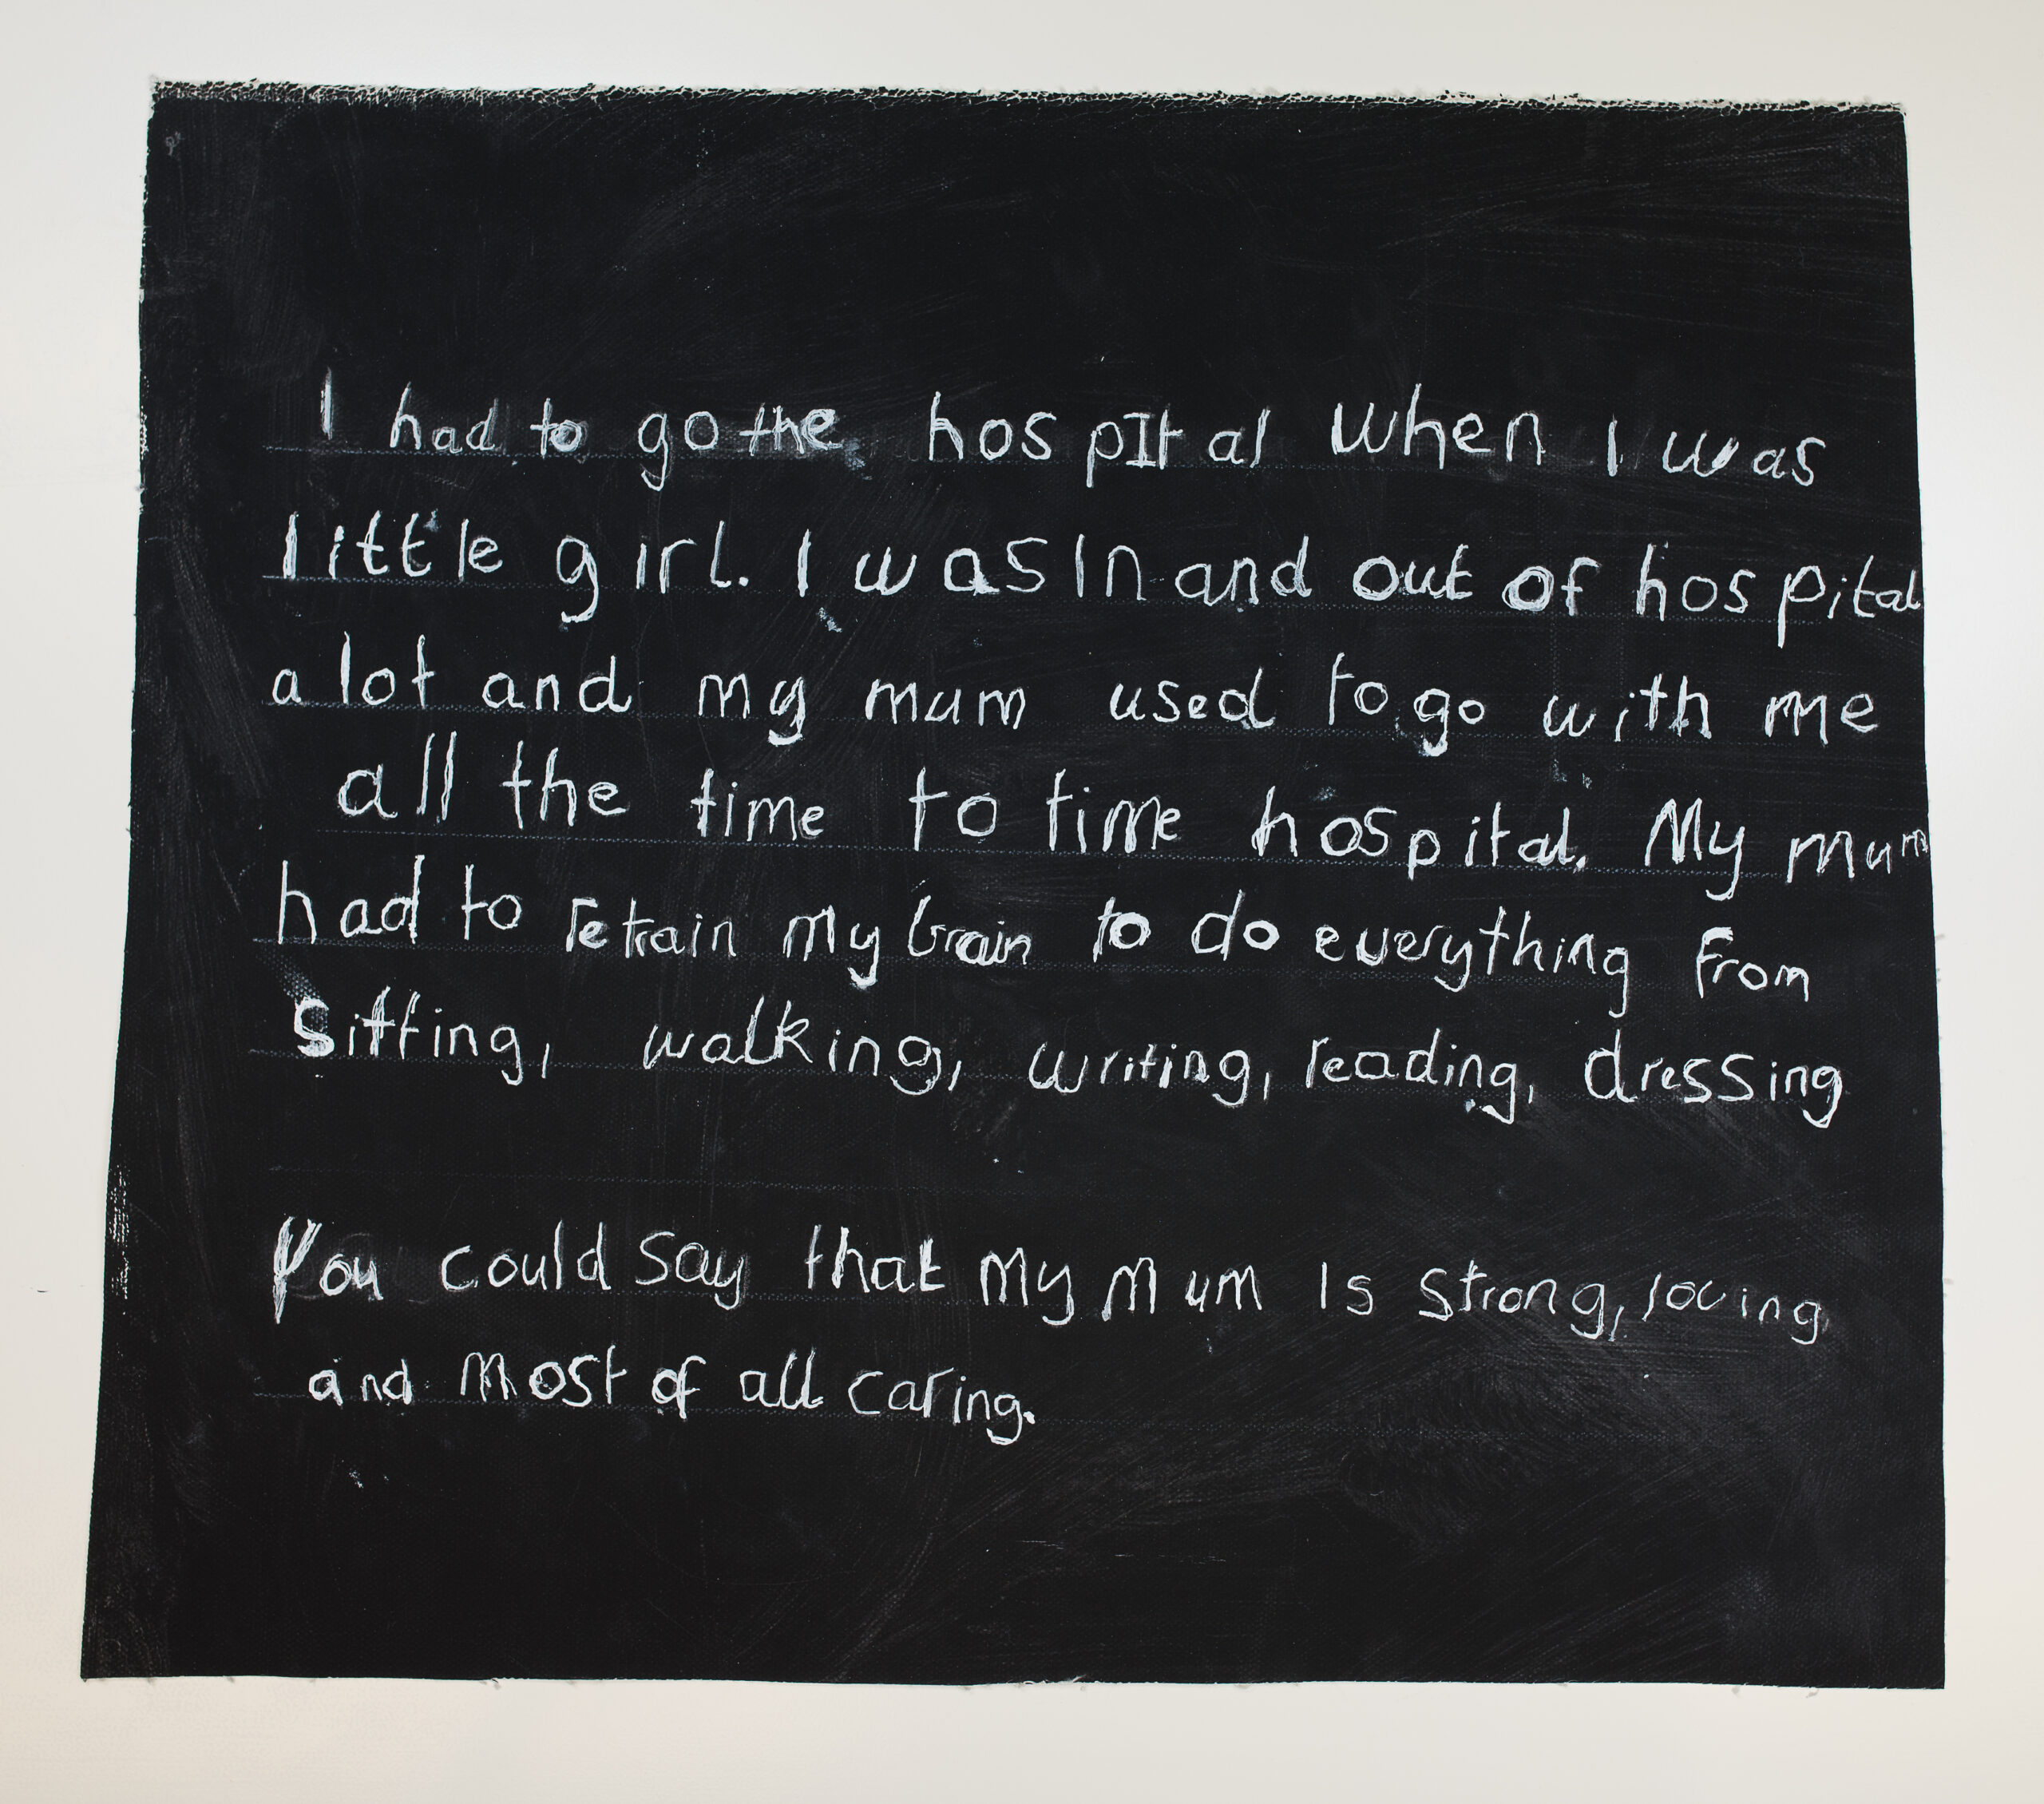 I had to go the hospital when I was
little girl. I was In and out of hospital
a lot and my mum used to go with me
all the time to time hospital. My mum
had to retrain my brain to do everything from
sitting, walking, writing, reading, dressing
You could say that my mum is strong, loving
and most of all caring.